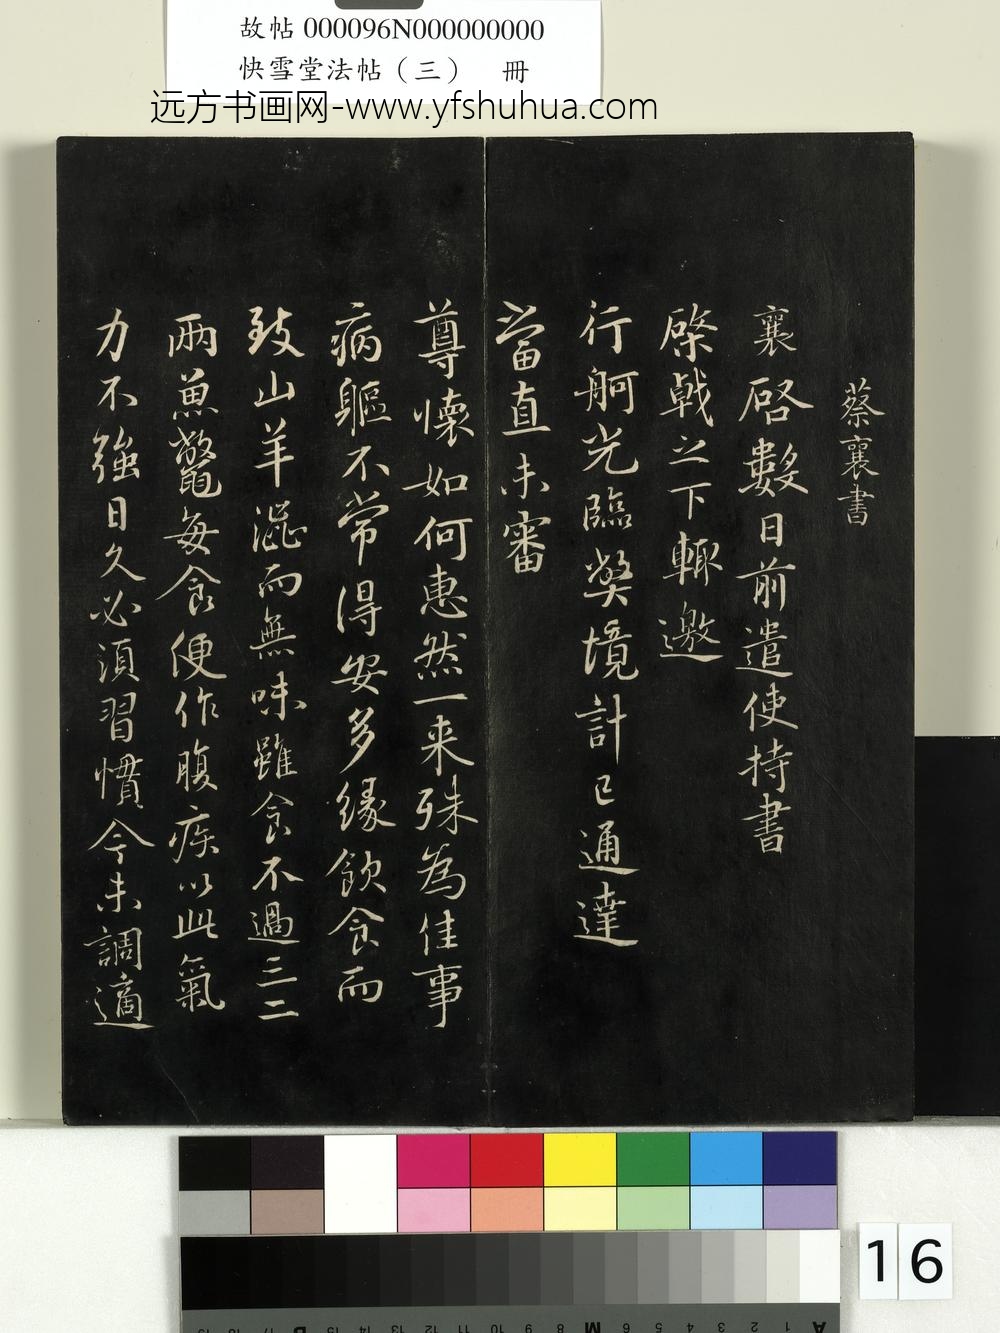 故帖 000096N000000000
快雪堂法帖（三） 冊
远方书画网-www.yfshuhua.com
蔡襄書
襄啓數日前遣使持書
棨戟之下輙邀
行舸光臨獘境計已通達
當直未審
尊懷如何惠然一来殊為佳事
病軀不常得安多緣飲食而
致山羊澁而無味雖食不過三二
兩魚鼈每食便作腹疾以此氣
力不強日久必須習慣今未調適
16